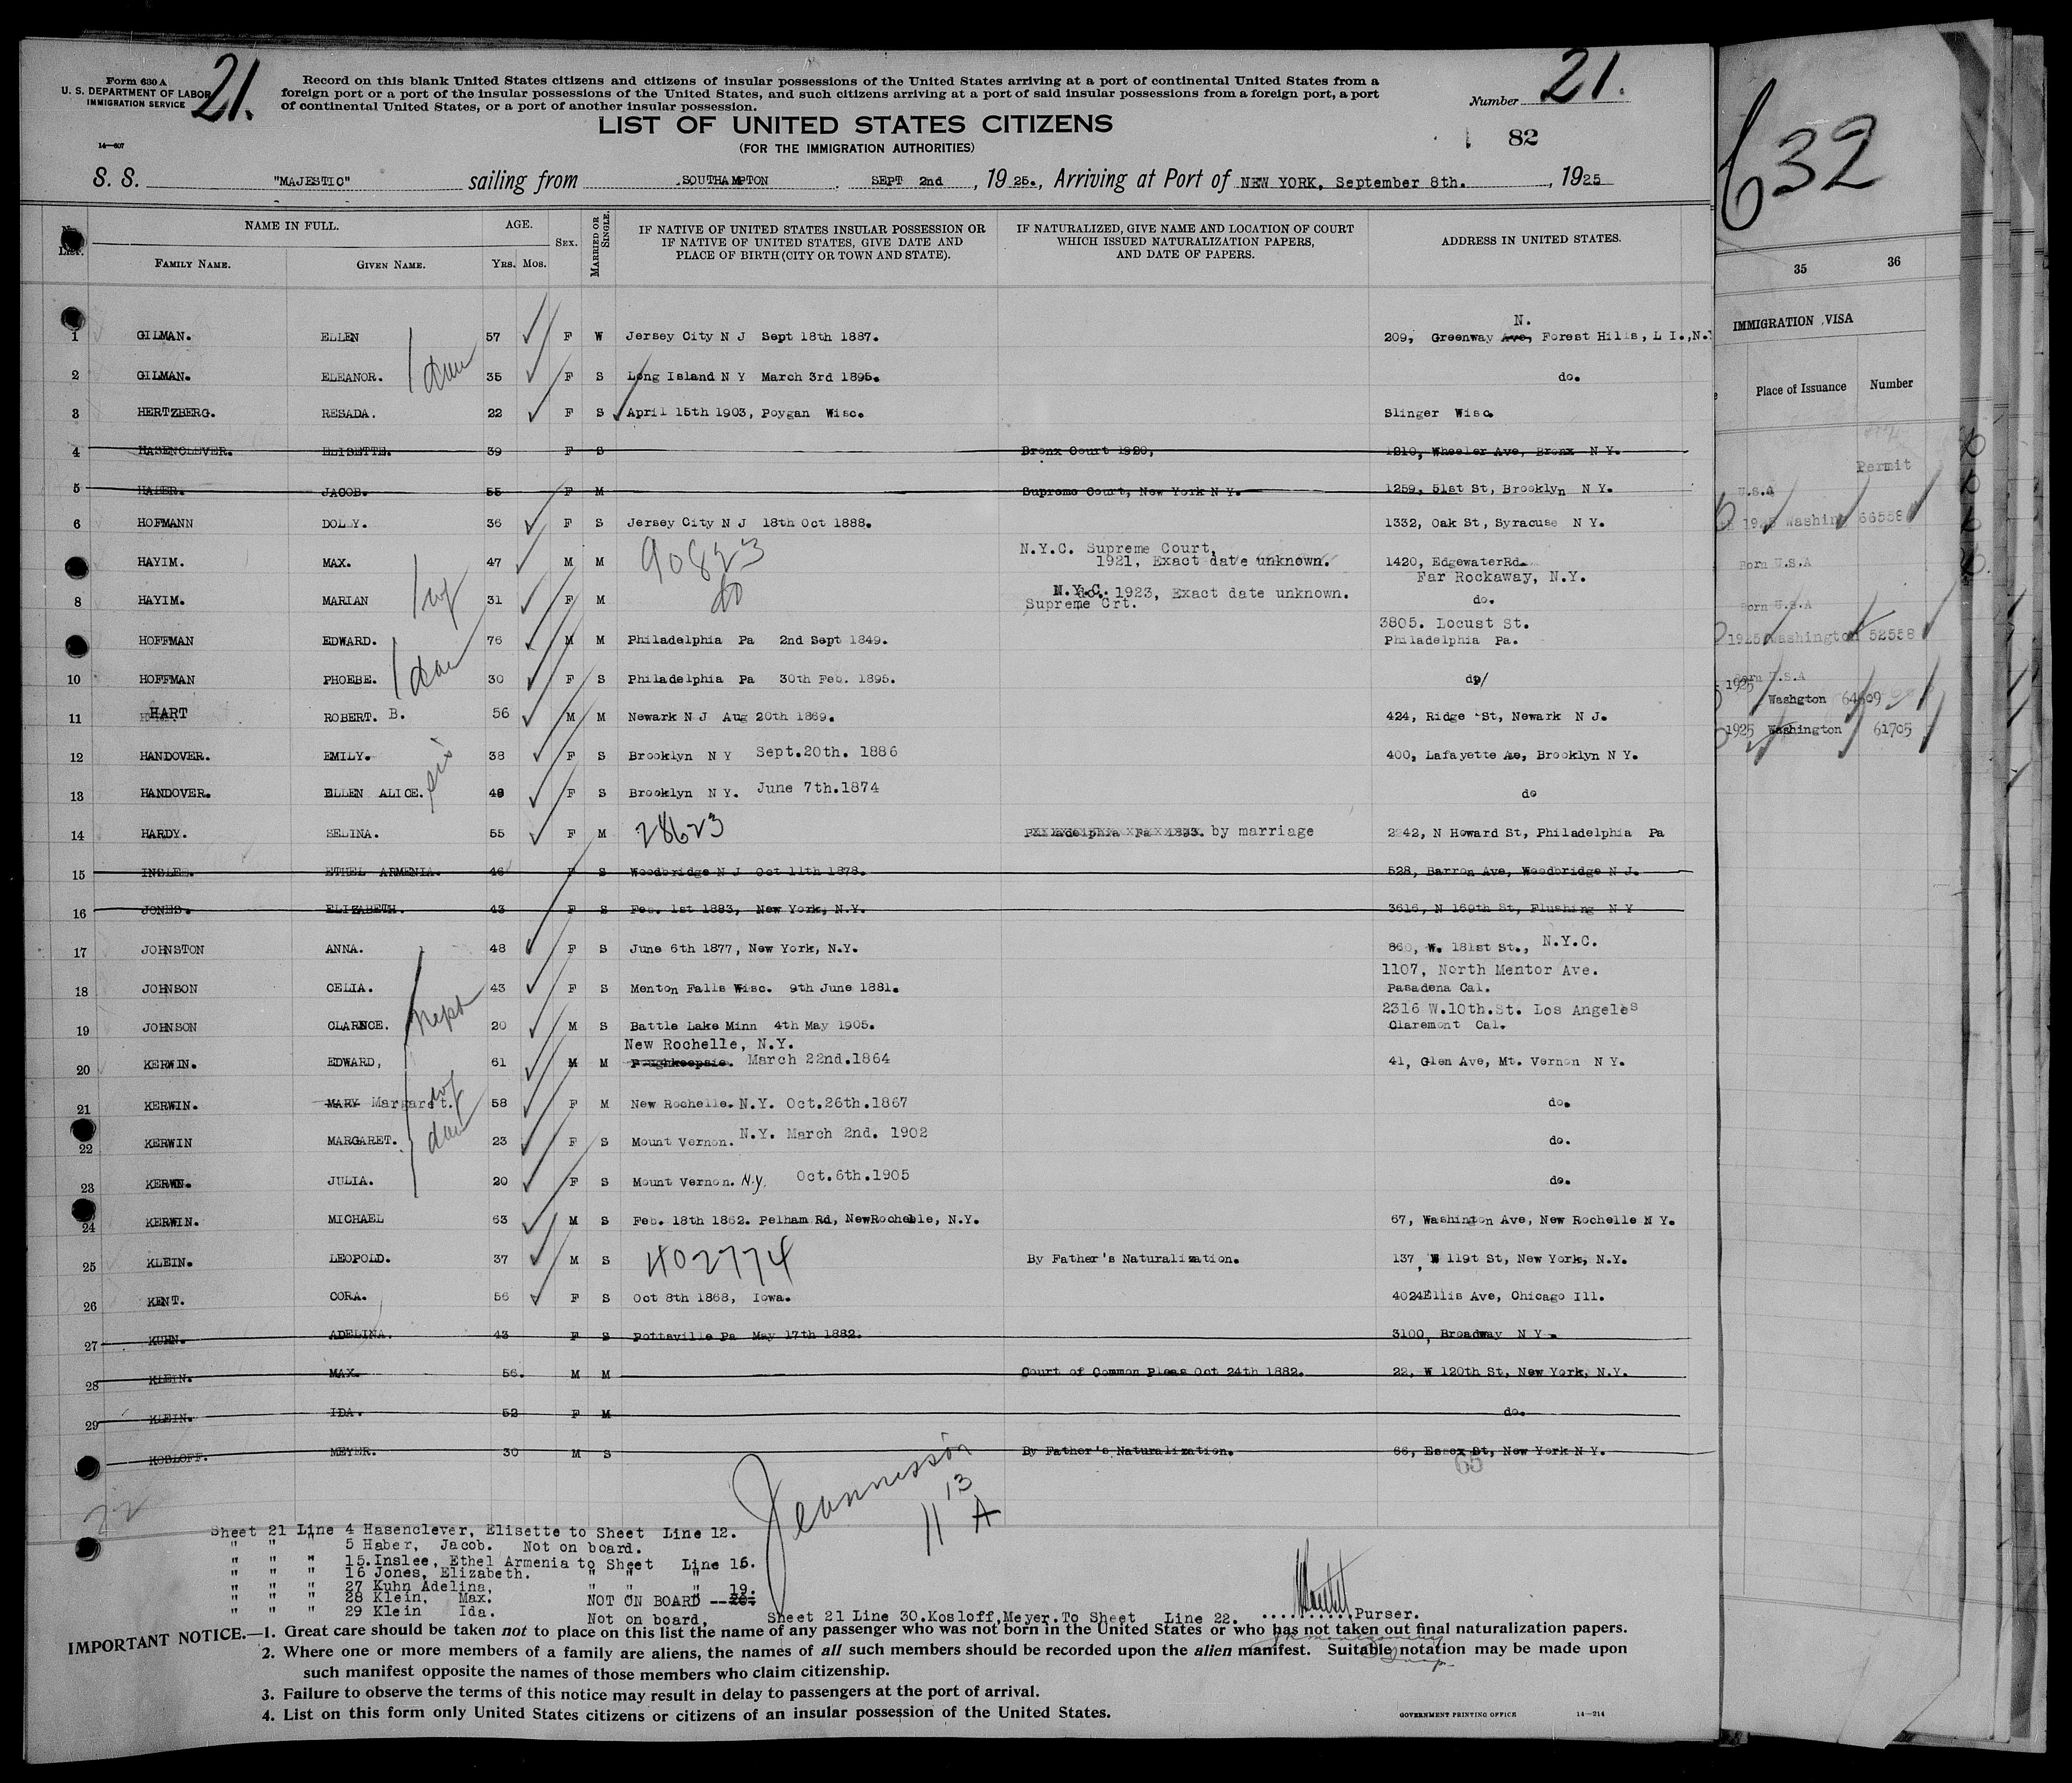 Form 630 A
U. S. DEPARTMENT OF LABOR
IMMIGRATION SERVICE
21.
Record on this blank United States citizens and citizens of insular possessions of the United States arriving at a port of continental United States from a
foreign port or a port of the insular possessions of the United States, and such citizens arriving at a port of said insular possessions from a foreign port, a port
of continental United States, or a port of another insular possession.
Number 21.
14—607
LIST OF UNITED STATES CITIZENS
(FOR THE IMMIGRATION AUTHORITIES)
82
S. S. "MAJESTIC" sailing from SOUTHAMPTON SEPT 2nd, 1925., Arriving at Port of NEW YORK, September 8th., 1925
NAME IN FULL. AGE. SEX. MARRIED OR SINGLE. IF NATIVE OF UNITED STATES INSULAR POSSESSION OR IF NATIVE OF UNITED STATES, GIVE DATE AND PLACE OF BIRTH (CITY OR TOWN AND STATE). IF NATURALIZED, GIVE NAME AND LOCATION OF COURT WHICH ISSUED NATURALIZATION PAPERS, AND DATE OF PAPERS. ADDRESS IN UNITED STATES.
FAMILY NAME. GIVEN NAME. YRS. MOS.
N.
1 GILMAN. ELLEN 57 F W Jersey City N J Sept 18th 1887. 209, Greenway Ave, Forest Hills, L I.,N.
dau
2 GILMAN. ELEANOR. 35 F S Long Island N Y March 3rd 1895. do.
3 HERTZBERG. RESADA. 22 F S April 15th 1903, Poygan Wisc. Slinger Wisc.
4 HASENCLEVER. ELISETTE. 39 F S Bronx Court 1920, 1210, Wheeler Ave, Bronx N Y.
5 HABER. JACOB. 55 F M Supreme Court, New York N Y. 1259, 51st St, Brooklyn N Y.
6 HOFMANN DOLLY. 36 F S Jersey City N J 18th Oct 1888. 1332, Oak St, Syracuse N Y.
N.Y.C. Supreme Court,
HAYIM. MAX. 47 M M 90823 1921, Exact date unknown. 1420, EdgewaterRd.
Far Rockaway, N.Y.
8 HAYIM. MARIAN wf 31 F M do N.Y.C. 1923, Exact date unknown. do.
Supreme Crt.
3805. Locust St.
HOFFMAN EDWARD. 76 M M Philadelphia Pa 2nd Sept 1849. Philadelphia Pa.
dau
10 HOFFMAN PHOEBE. 30 F S Philadelphia Pa 30th Feb. 1895. do/
11 HART ROBERT. B. 56 M M Newark N J Aug 20th 1869. 424, Ridge St, Newark N J.
12 HANDOVER. EMILY. 38 F S Brooklyn N Y Sept.20th. 1886 400, Lafayette Ae, Brooklyn N Y.
sis
13 HANDOVER. ELLEN ALICE. 49 F S Brooklyn N Y. June 7th.1874 do
14 HARDY. SELINA. 55 F M 28623 Philadelphia Pa 1893. by marriage 2242, N Howard St, Philadelphia Pa
15 INSLEE. ETHEL ARMENIA. 46 F S Woodbridge N J Oct 11th 1878. 528, Barron Ave, Woodbridge N J.
16 JONES. ELIZABETH. 43 F S Feb. 1st 1883, New York, N.Y. 3616, N 169th St, Flushing N Y
17 JOHNSTON ANNA. 48 F S June 6th 1877, New York, N.Y. 860, W. 181st St., N.Y.C.
1107, North Mentor Ave.
18 JOHNSON CELIA. 43 F S Menton Falls Wisc. 9th June 1881. Pasadena Cal.
neph
2316 W.10th.St. Los Angeles
19 JOHNSON CLARNCE. 20 M S Battle Lake Minn 4th May 1905. Claremont Cal.
New Rochelle, N.Y.
20 KERWIN. EDWARD, 61 M M Poughkeepsie. March 22nd.1864 41, Glen Ave, Mt. Vernon N Y.
21 KERWIN. MARY Margaret. wf 58 F M New Rochelle. N.Y. Oct.26th.1867 do.
dau
22 KERWIN MARGARET. 23 F S Mount Vernon. N.Y. March 2nd. 1902 do.
23 KERWN. JULIA. 20 F S Mount Vernon. N.y. Oct.6th.1905 do.
24 KERWIN. MICHAEL 63 M S Feb. 18th 1862. Pelham Rd, NewRochelle, N.Y. 67, Washington Ave, New Rochelle N Y.
25 KLEIN. LEOPOLD. 37 M S 402774 By Father's Naturalization. 137, W 119t St, New York, N.Y.
26 KENT. CORA. 56 F S Oct 8th 1868, Iowa. 4024Ellis Ave, Chicago Ill.
27 KUHN. ADELINA. 43 F S Pottsville Pa May 17th 1882. 3100, Broadway N Y.
28 KLEIN. MAX. 56. M M Court of Common Pleas Oct 24th 1882. 22, W 120th St, New York, N.Y.
29 KLEIN. IDA. 52 F M do.
KOSLOFF. MEYER. 30 M S By Father's Naturalization. 66, Essex St, New York N Y.
65
13
11 A
22
Sheet 21 Line 4 Hasenclever, Elisette to Sheet Line 12.
" " " 5 Haber, Jacob. Not on board.
" " " 15.Inslee, Ethel Armenia to Sheet Line 15.
" " " 16 Jones, Elizabeth. " " "
" " " 27 Kuhn Adelina, " " " 19.
" " " 28 Klein, Max. NOT ON BOARD --
" " " 29 Klein Ida. Not on board, Sheet 21 Line 30.Kosloff,Meyer.To Sheet Line 22. ..........Purser.
IMPORTANT NOTICE.—1. Great care should be taken not to place on this list the name of any passenger who was not born in the United States or who has not taken out final naturalization papers.
2. Where one or more members of a family are aliens, the names of all such members should be recorded upon the alien manifest. Suitable notation may be made upon
such manifest opposite the names of those members who claim citizenship.
3. Failure to observe the terms of this notice may result in delay to passengers at the port of arrival.
4. List on this form only United States citizens or citizens of an insular possession of the United States.
GOVERNMENT PRINTING OFFICE 14—214
632
35 36
IMMIGRATION VISA
Place of Issuance Number
Permit
U.S.A
Washin 66558
Born U.S.A
Born U.S.A
1925 Washington 52558
Born U.S.A
1925 Washgton 64609
1925 Washington 61705